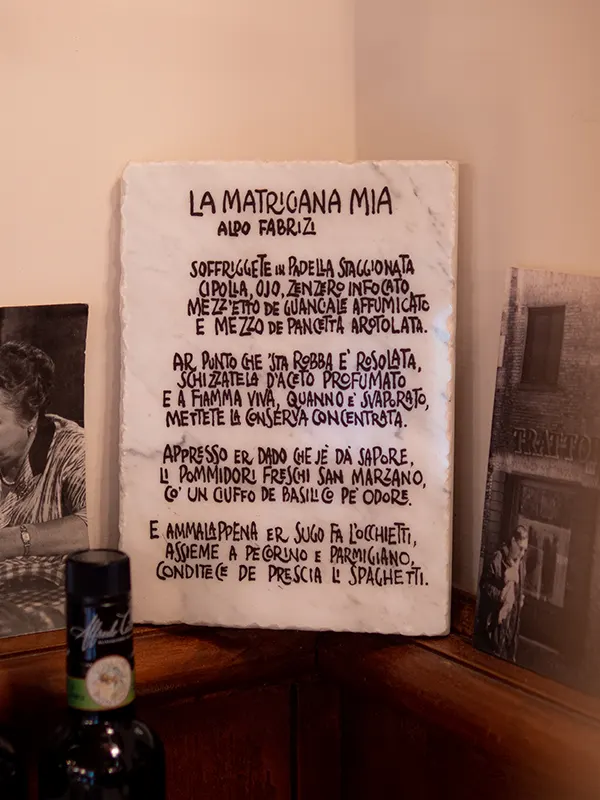 LA MATRICANA MIA
ALDO FABRIZI
SOFFRIGGETE IN PADELLA STAGGIONATA
CIPOLLA, OJO, ZENZERO INFOCATO,
MEZZ'ETTO DE GUANCIALE AFFUMICATO
E MEZZO DE PANCETTA AROTOLATA.
AR PUNTO CHE 'STA ROBBA E' ROSOLATA,
SCHIZZATELA D'ACETO PROFUMATO
E A FIAMMA VIVA, QUANNO E' SVAPORATO,
METTETE LA CONSERVA CONCENTRATA.
APPRESSO ER DADO CHE JÈ DÀ SAPORE,
LI POMMIDORI FRESCHI SAN MARZANO,
CO' UN CIUFFO DE BASILICO PE' ODORE.
E AMMALAPPENA ER SUGO FA L'OCCHIETTI,
ASSIEME A PECORINO E PARMIGIANO,
CONDITECE DE PRESCIA LI SPAGHETTI.
TRATTO
Alfredo